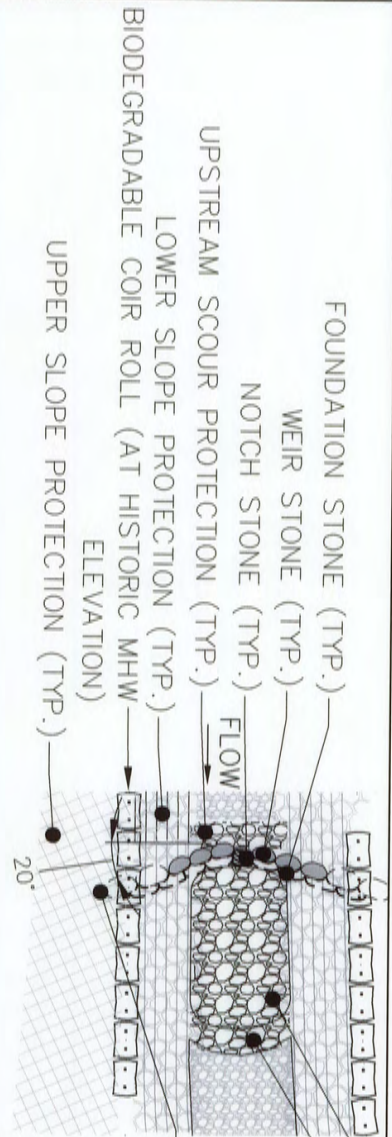 FOUNDATION STONE (TYP.)
WEIR STONE (TYP.)
NOTCH STONE (TYP.)
UPSTREAM SCOUR PROTECTION (TYP.)
LOWER SLOPE PROTECTION (TYP.)
BIODEGRADABLE COIR ROLL (AT HISTORIC MHW
ELEVATION)
UPPER SLOPE PROTECTION (TYP.)
FLOW
20°